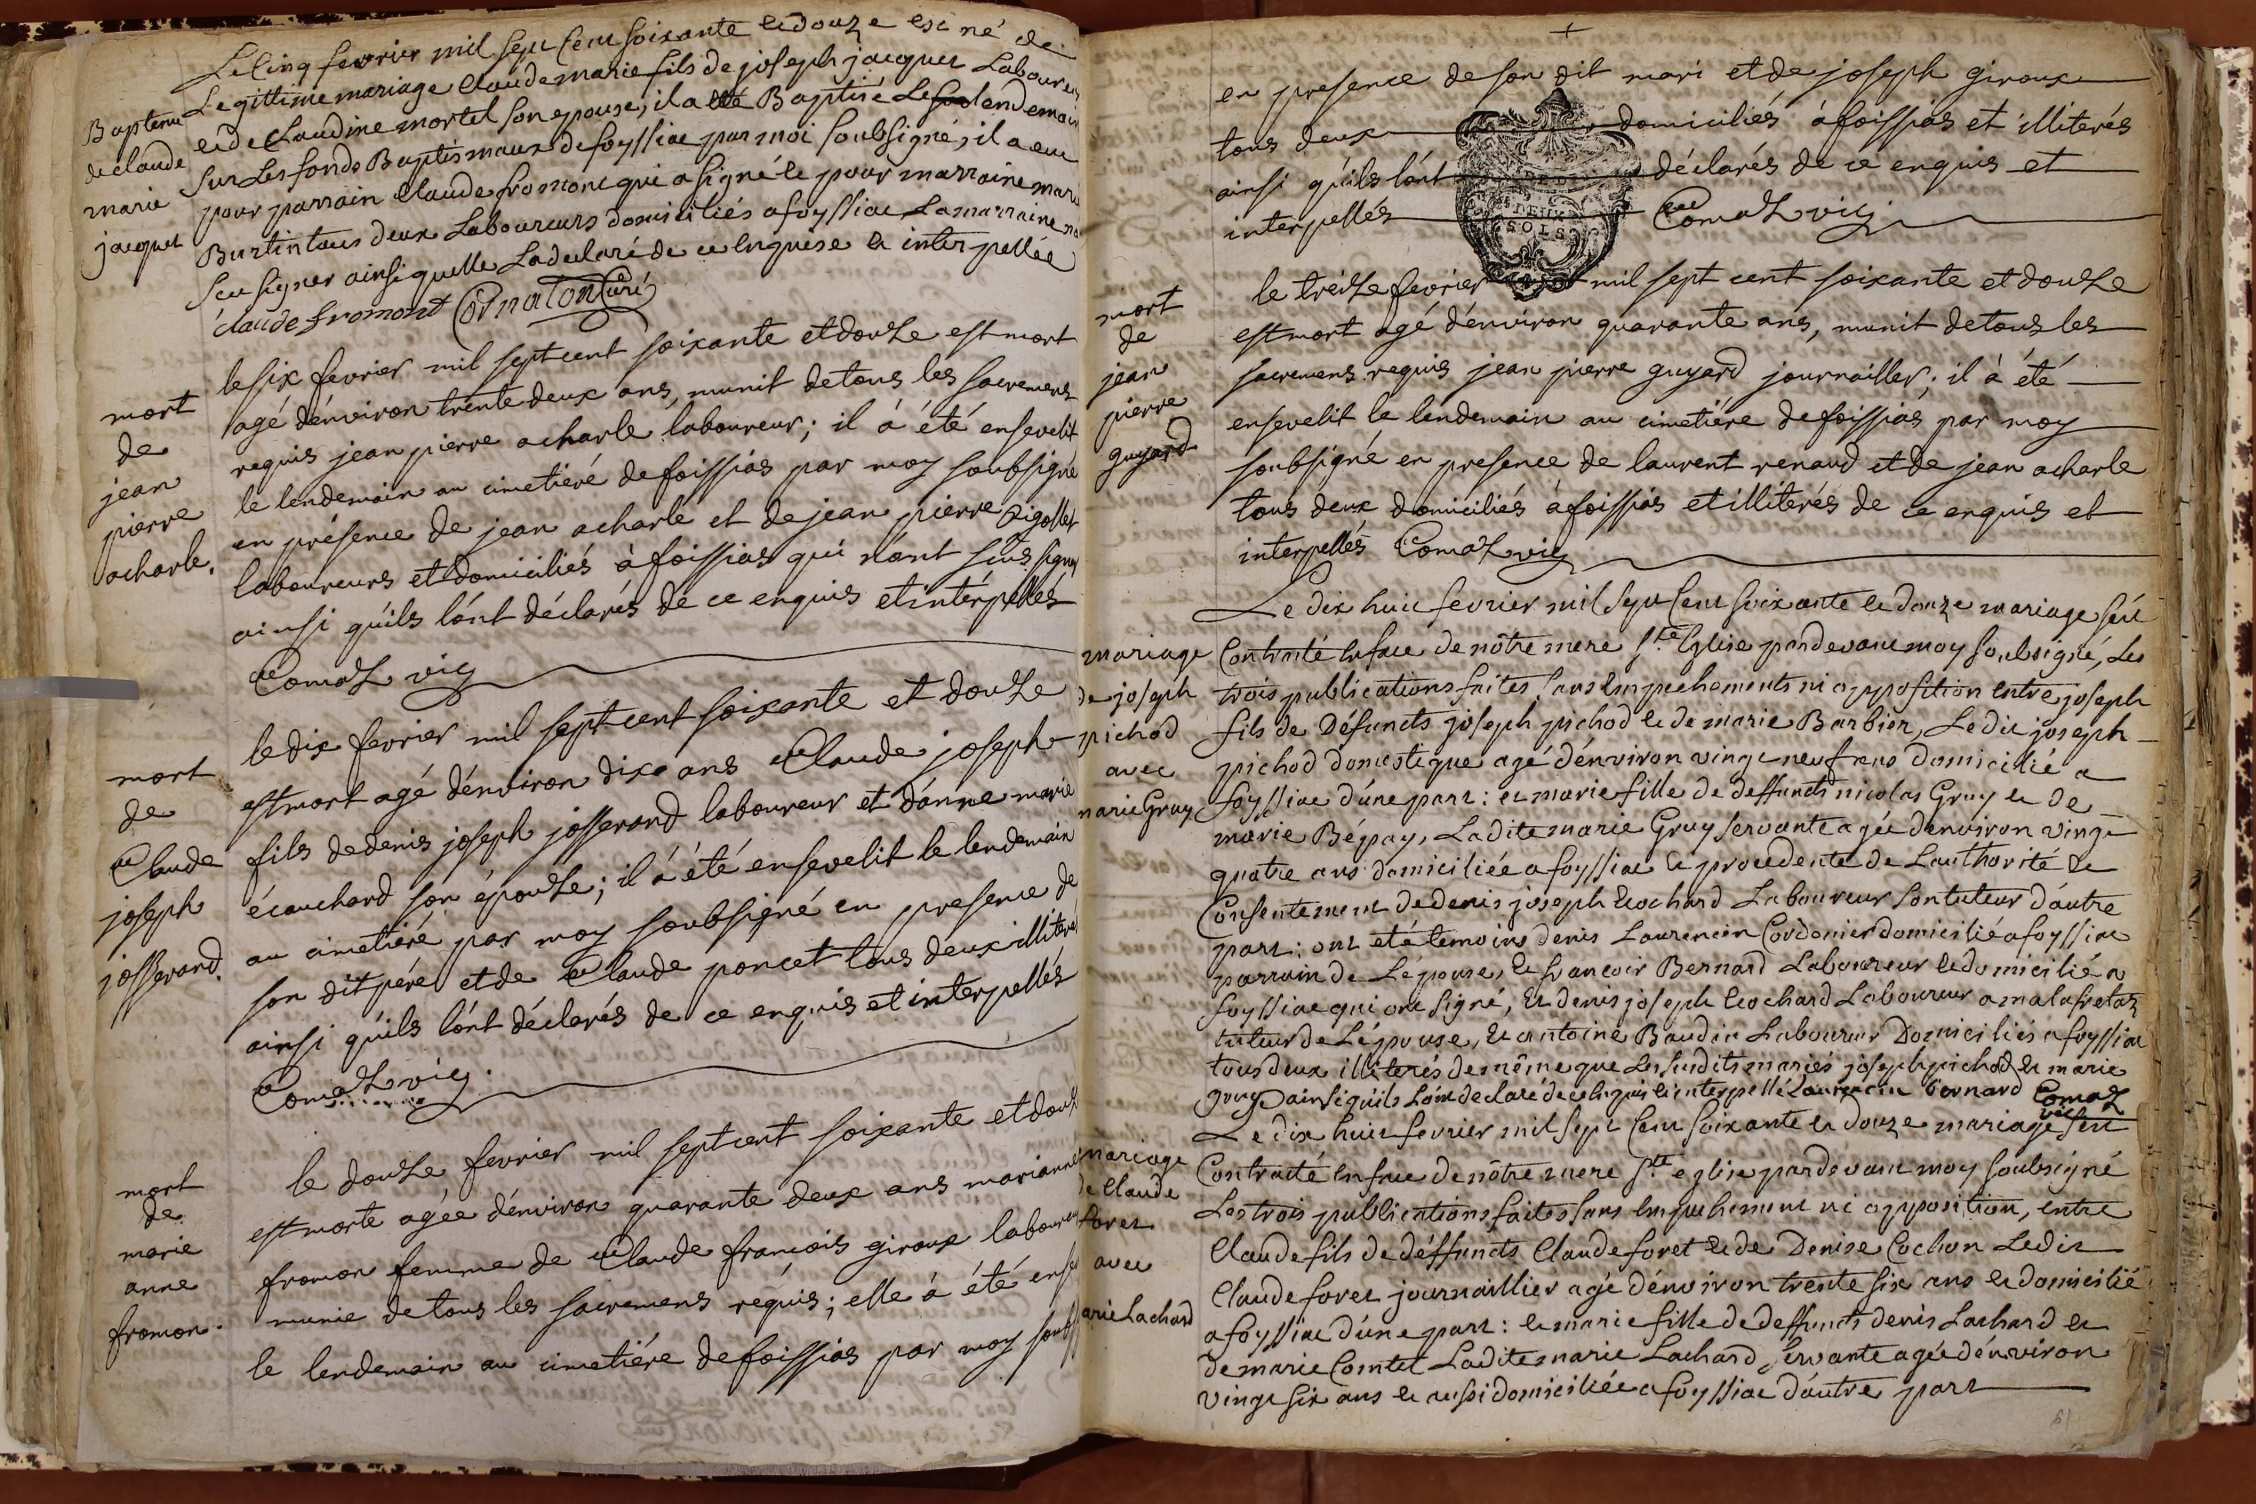 Le cinq fevrier mil sept cent soixante et douze est né de
Legittime mariage claude marie fils de joseph jacquet Laboureur
et de Claudine mortel son epouse, il a été Baptisé Le lendemain
Sur Les fonds Baptismaux de foyssiac par moi soubsigné, il a eu
pour parrain Claude fromont qui a signé et pour marraine marie
Burtin tous deux Laboureurs domiciliés a foyssiac La marraine na
sceu signer ainsi quelle La declaré de ce Enquise et interpellée
claude fromont Cornaton Curé
Bapteme
de claude
marie
jacquet
le six fevrier mil sept cent soixante et douze est mort
agé d'environ trente deux ans, munit de tous les sacremens
requis jean pierre acharle laboureur; il à été ensevelit
le lendemain au cimetiére de foissias par moy soubsigné
en présence de jean acharle et de jean pierre Rigollet
laboureurs et domiciliés à foissias qui n'ont sçus signer
ainsi qu'ils l'ont déclarés de ce enquis et intérpellés
Comaz vic
mort
de
jean
pierre
acharle.
le dix fevrier mil sept cent soixante et douze
est mort agé d'environ dixe ans Claude joseph
fils de denis joseph josserand laboureur et d'anne marie
écauchard son épouse; il à été ensevelit le lendemain
au cimetiére par moy soubsigné en presence de
son dit pére et de Claude poncet tous deux illiterés
ainsi qu'ils l'ont déclarés de ce enquis et interpellés
Comaz vic.
mort
de
Claude
joseph
josserand.
le douze fevrier mil sept cent soixante et douze
est morte agée d'environ quarante deux ans marianne
fromon femme de Claude françois giroux laboureur
munie de tous les sacremens réquis; elle à été ense
le lendemain au cimetiére de foissias par moy soubs
mort
de
marie
anne
fromon.
en presence de son dit mari et de joseph giroux
tous deux domiciliés à foissias et illiterés
ainsi qu'ils l'ont déclarés de ce enquis et
interpellés Comaz vic
DEUX
SOLS
le tréize fevrier mil sept cent soixante et douze
est mort agé d'environ quarante ans, munit de tous les
sacremens requis jean pierre guyard journailler; il à été
ensevelit le lendemain au cimetiére de foissias par moy
soubsigné en presence de laurent renaud et de jean acharle
tous deux domiciliés à foissias et illiterés de ce enquis et
interpellés Comaz vic
mort
de
jean
pierre
guyard
Le dix huit fevrier mil sept Cent soixante et douze mariage fût
Contracté En face de nôtre mere Ste Eglise pardevant moy soubsigné, Les
trois publications faites sans Empechements ni opposition Entre joseph
fils de Défuncts joseph pichod et de marie Barbier, Le dit joseph
pichod domestique agé d'environ vingt neuf ans domicilié a
foyssiac d'une part: et marie fille de deffuncts nicolas Gruy et de
marie Bépay, Ladite marie Gruy servante agée d'environ vingt
quatre ans domiciliée a foyssiac et procedente de L'authorité et
Consentement de denis joseph Ecochard Laboureur son tuteur d'autre
part: ont eté temoins denis Laurencin Cordonier domicilié a foyssiac
parrain de L'épouse, et françois Bernard Laboureur et domicilié a
foyssiac qui ont signé, Et denis joseph Ecochard Laboureur a malafretaz
tuteur de L'épouse, et antoine Baudin Laboureur Domiciliés a foyssiac
tous deux illiterés de même que Les susdits mariés joseph pichod et marie
gruy ainsi qu'ils L'ont declaré de ce Enquis et interpellé Laurencin bernard Comaz
vic
mariage
de joseph
pichod
avec
marie Gruy
Le dix huit fevrier mil sept Cent soixante et douze mariage fût
Contracté En face de nôtre mere Ste eglise pardevant moy soubsigné
Les trois publications faites sans Empechement ni opposition, entre
Claude fils de déffuncts Claude foret et de Denise Cochon Le dit
Claude foret journaillier agé d'environ trente six ans et domicilié
a foyssiac d'une part: et marie fille de deffuncts denis Lachard et
de marie Comtet Ladite marie Lachard servante agée d'environ
vingt six ans et aussi domiciliée a foyssiac d'autre part
mariage
de Claude
foret
avec
arie Lachard